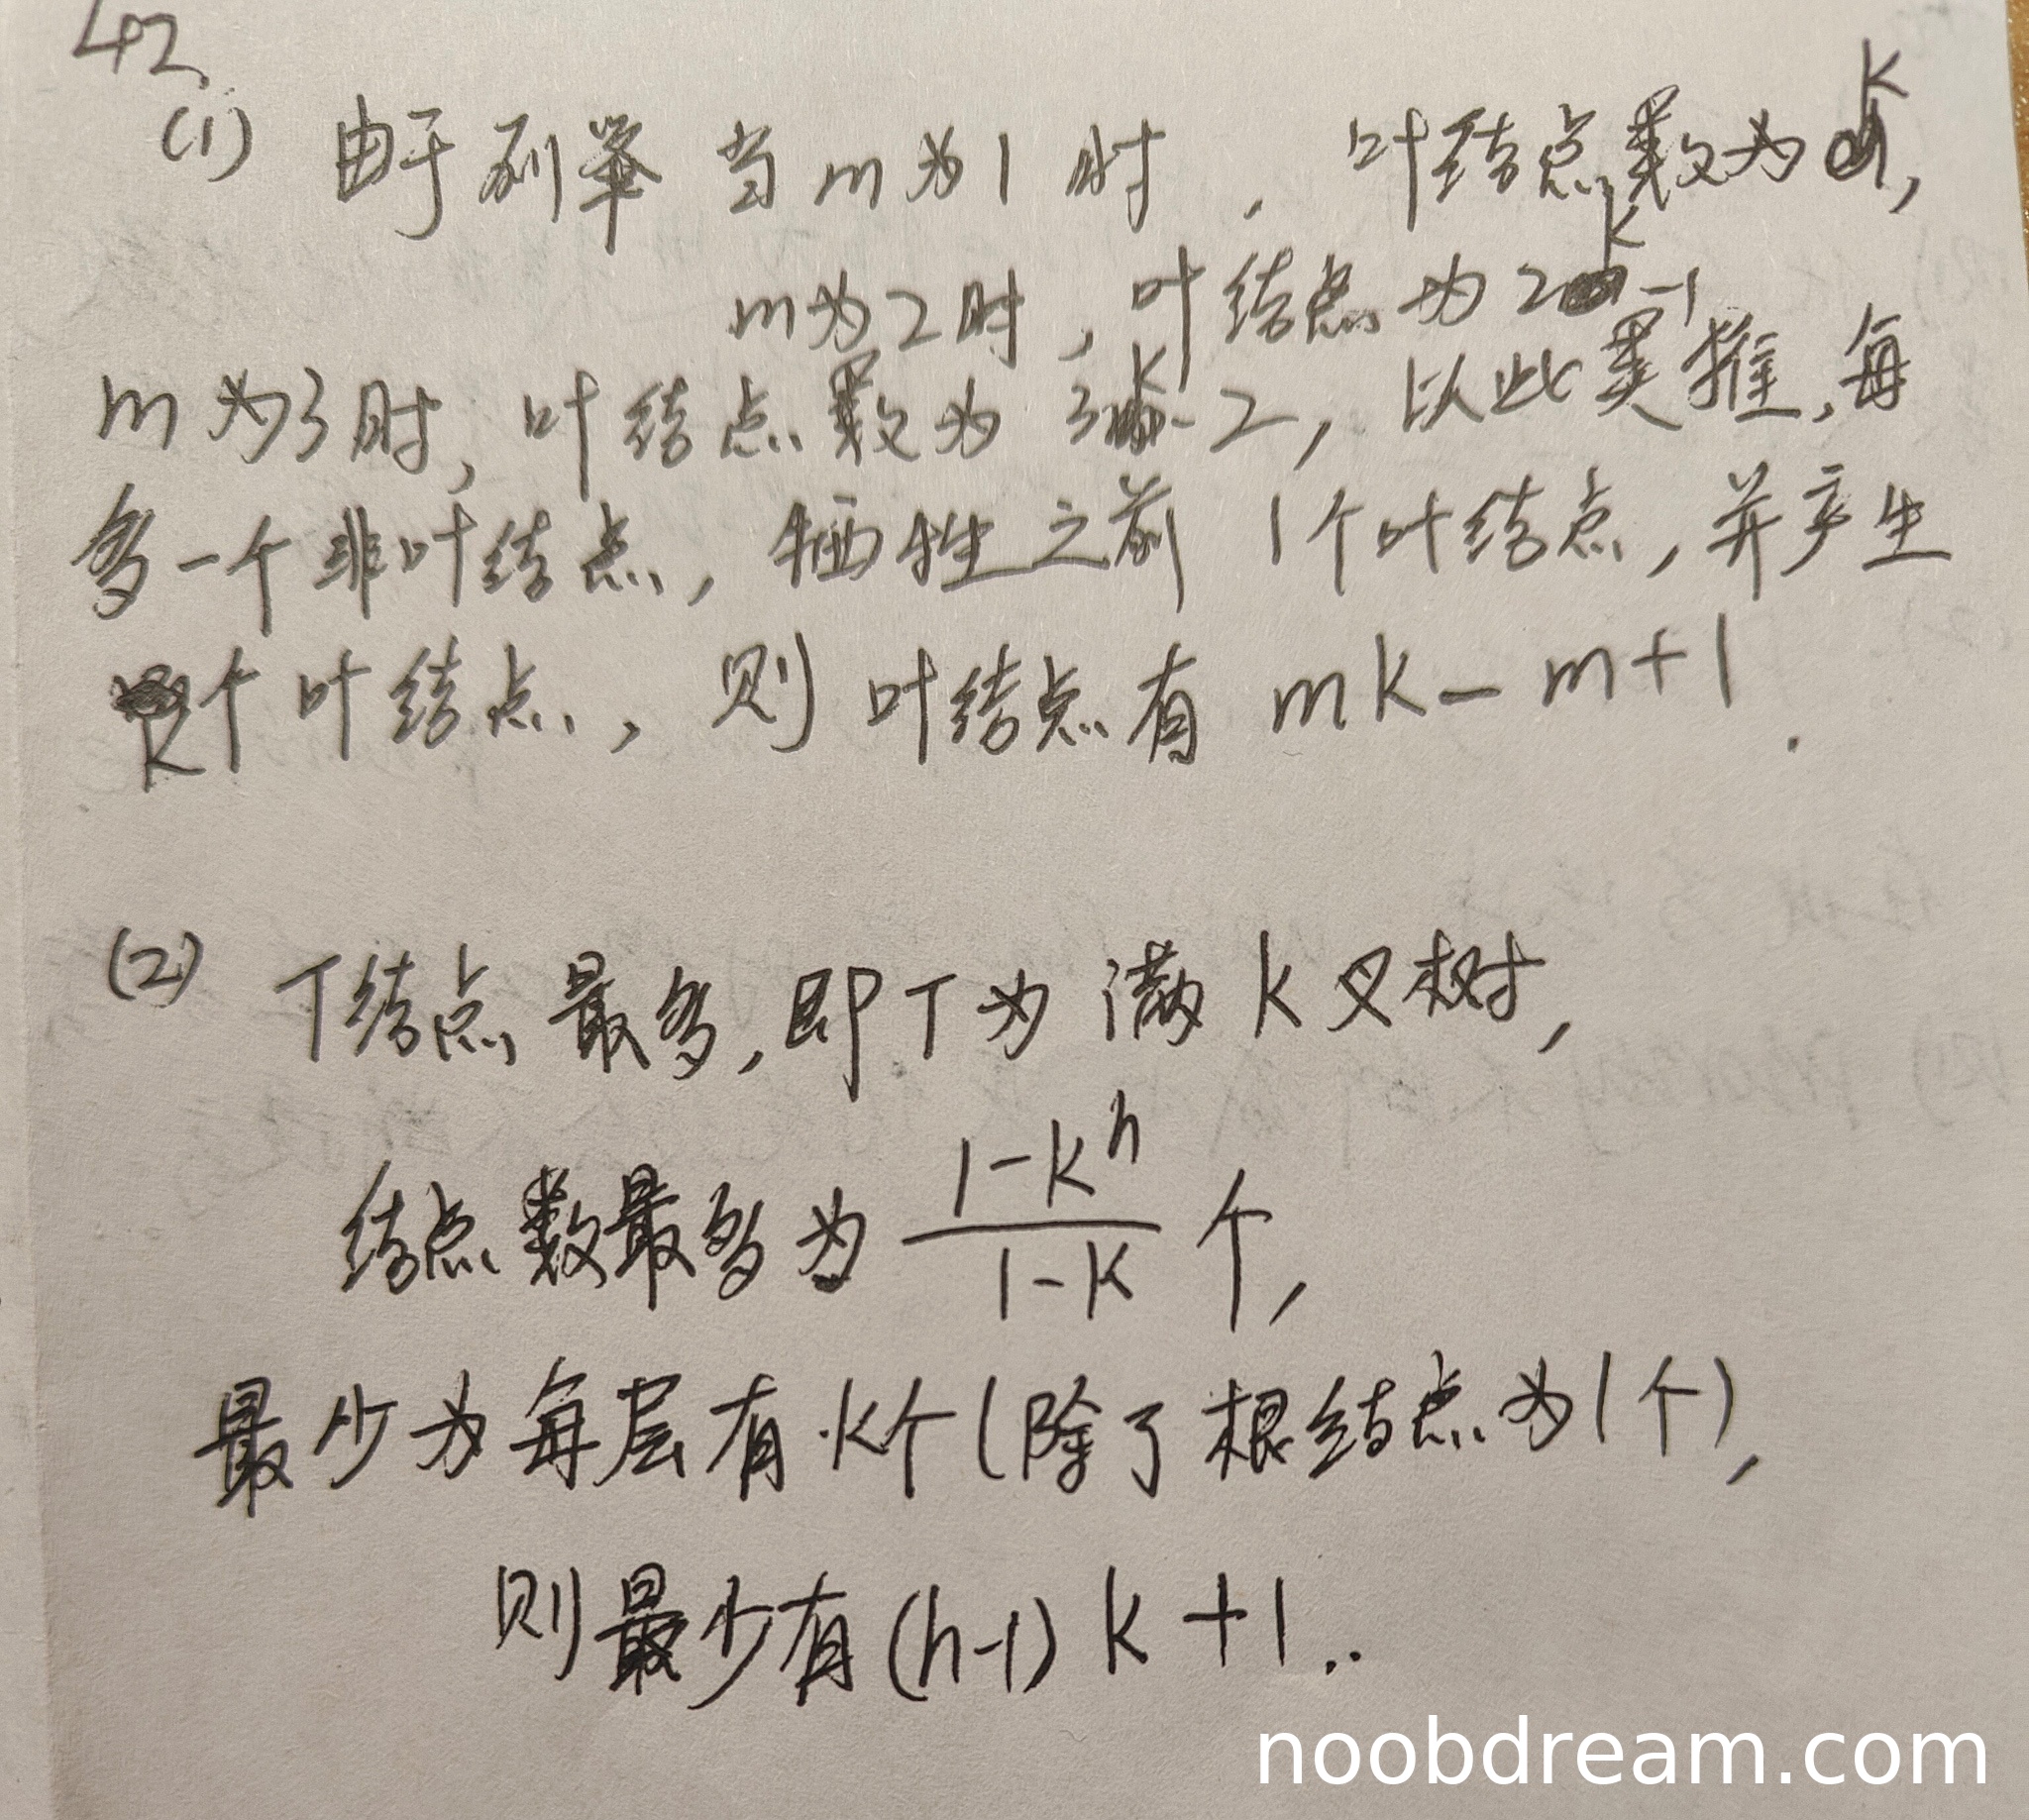 42.
(1) 由于列举 当m为1时，叶结点数为k，
m为2时，叶结点为2k-1
m为3时，叶结点数为3k-2，以此类推，每
多一个非叶结点，牺牲之前1个叶结点，并产生
k个叶结点，则叶结点有 mk-m+1.
(2) T结点最多，即T为满k叉树，
结点数最多为 (1-k^h)/(1-k) 个，
最少为每层有k个(除了根结点为1个)，
则最少有(h-1)k+1..
noobdream.com